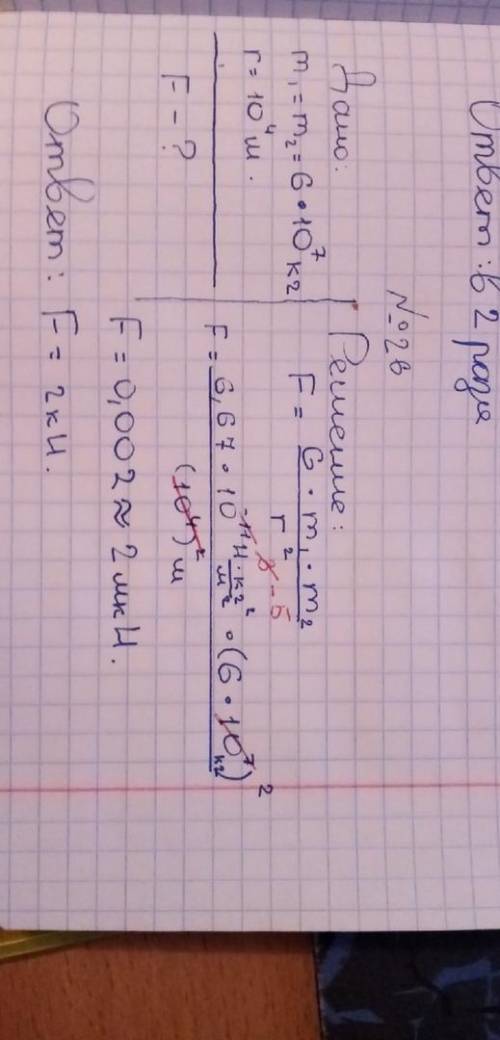 Ответ: в 2 раза
№2в
Дано:
m₁ = m₂ = 6 • 10⁷ кг
r = 10⁴ м.
F - ?
Решение:
F = G • m₁ • m₂ / r²
F = 6,67 • 10⁻¹¹ Н • кг² / м² • (6 • 10⁷ кг)² / (10⁴)² м
F = 0,002 ≈ 2 мкН.
Ответ: F = 2кН.